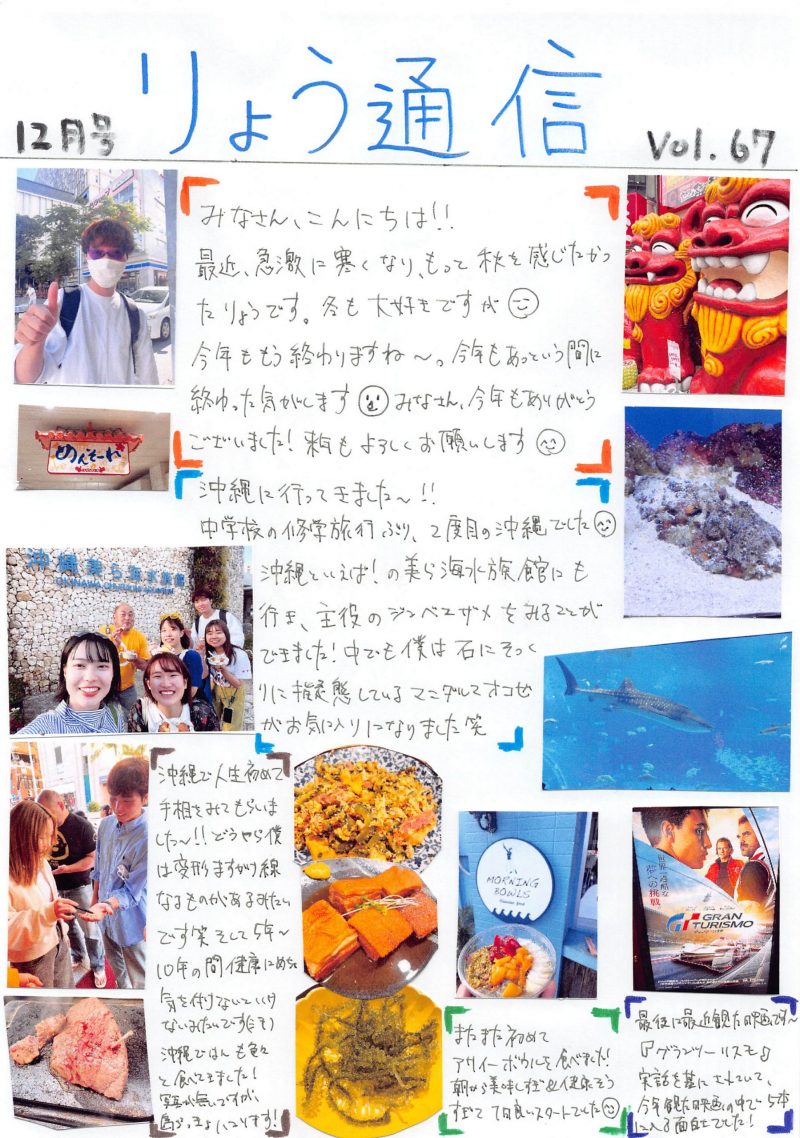 12月号
りょう通信
Vol.67
みなさん、こんにちは!!
最近、急激に寒くなり、もって秋を感じたかっ
たりょうです。冬も大好きですが
今年ももう終わりますね〜。今年もあっという間に
終わった気がします みなさん、今年もありがとう
ございました!来年もよろしくお願いします
めんそーれ
沖縄に行ってきました〜!!
中学校の修学旅行ぶり、2度目の沖縄でした
沖縄といえば!の美ら海水族館にも
行き、主役のジンベエザメをみることが
できました!中でも僕は石にそっく
りに擬態しているオニダルマオコゼ
がお気に入りになりました笑
沖縄美ら海水族館
OKINAWA CHURAUMI AQUARIUM
沖縄で人生初めて
手相をみてもらいま
した〜!!どうやら僕
は変形ますかけ線
なるものがあるみたい
です笑 そして5年〜
10年の間健康にめちゃ
気を付けないといけ
ないみたいです(汗)
沖縄ごはんも色々
と食べてきました!
写真が無いですが、
MORNING
BOWLS
またまた初めて
アサイーボウルを食べました!
朝から美味しすぎ&健康そう
すぎて1日良いスタートでした
世界一過酷な
夢への挑戦
GRAN
TURISMO
最後に最近観た映画です〜
『グランツーリスモ』
実話を基にされていて、
今年観た映画の中で5本
に入る面白さでした!